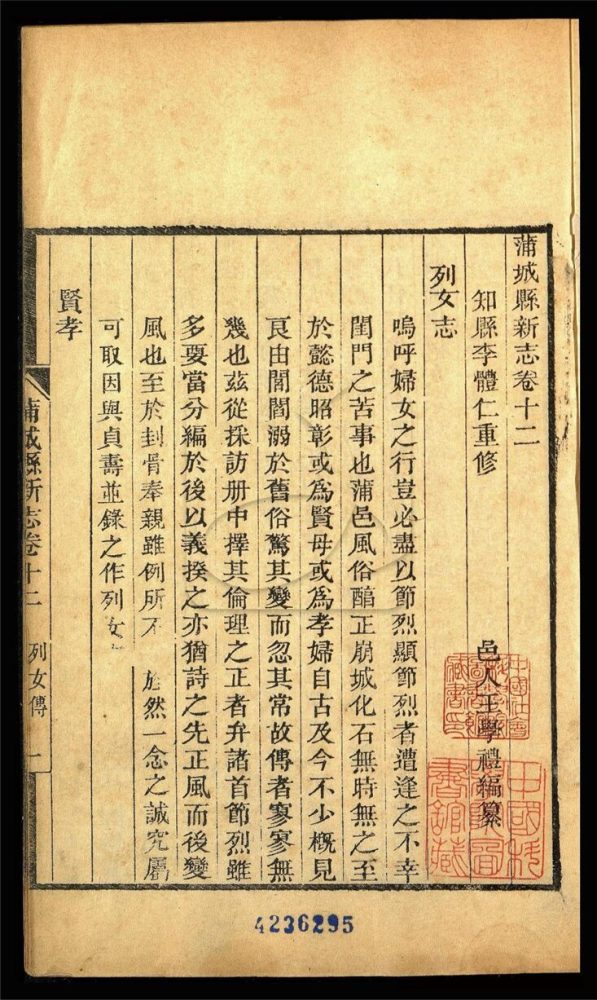 蒲城縣新志卷十二
知縣李體仁重修　邑人王學禮編纂
列女志
嗚呼婦女之行豈必盡以節烈顯節烈者遭逢之不幸
閨門之苦事也蒲邑風俗醇正崩城化石無時無之至
於懿德昭彰或爲賢母或爲孝婦自古及今不少槪見
良由閭閻溺於舊俗驚其變而忽其常故傳者寥寥無
幾也茲從採訪册中擇其倫理之正者弁諸首節烈雖
多要當分編於後以義揆之亦猶詩之先正風而後變
風也至於刲骨奉親雖例所不　旌然一念之誠究屬
可取因與貞壽並錄之作列女
賢孝
蒲城縣新志卷十二　列女傳　一
中國社會
書館藏
4236295